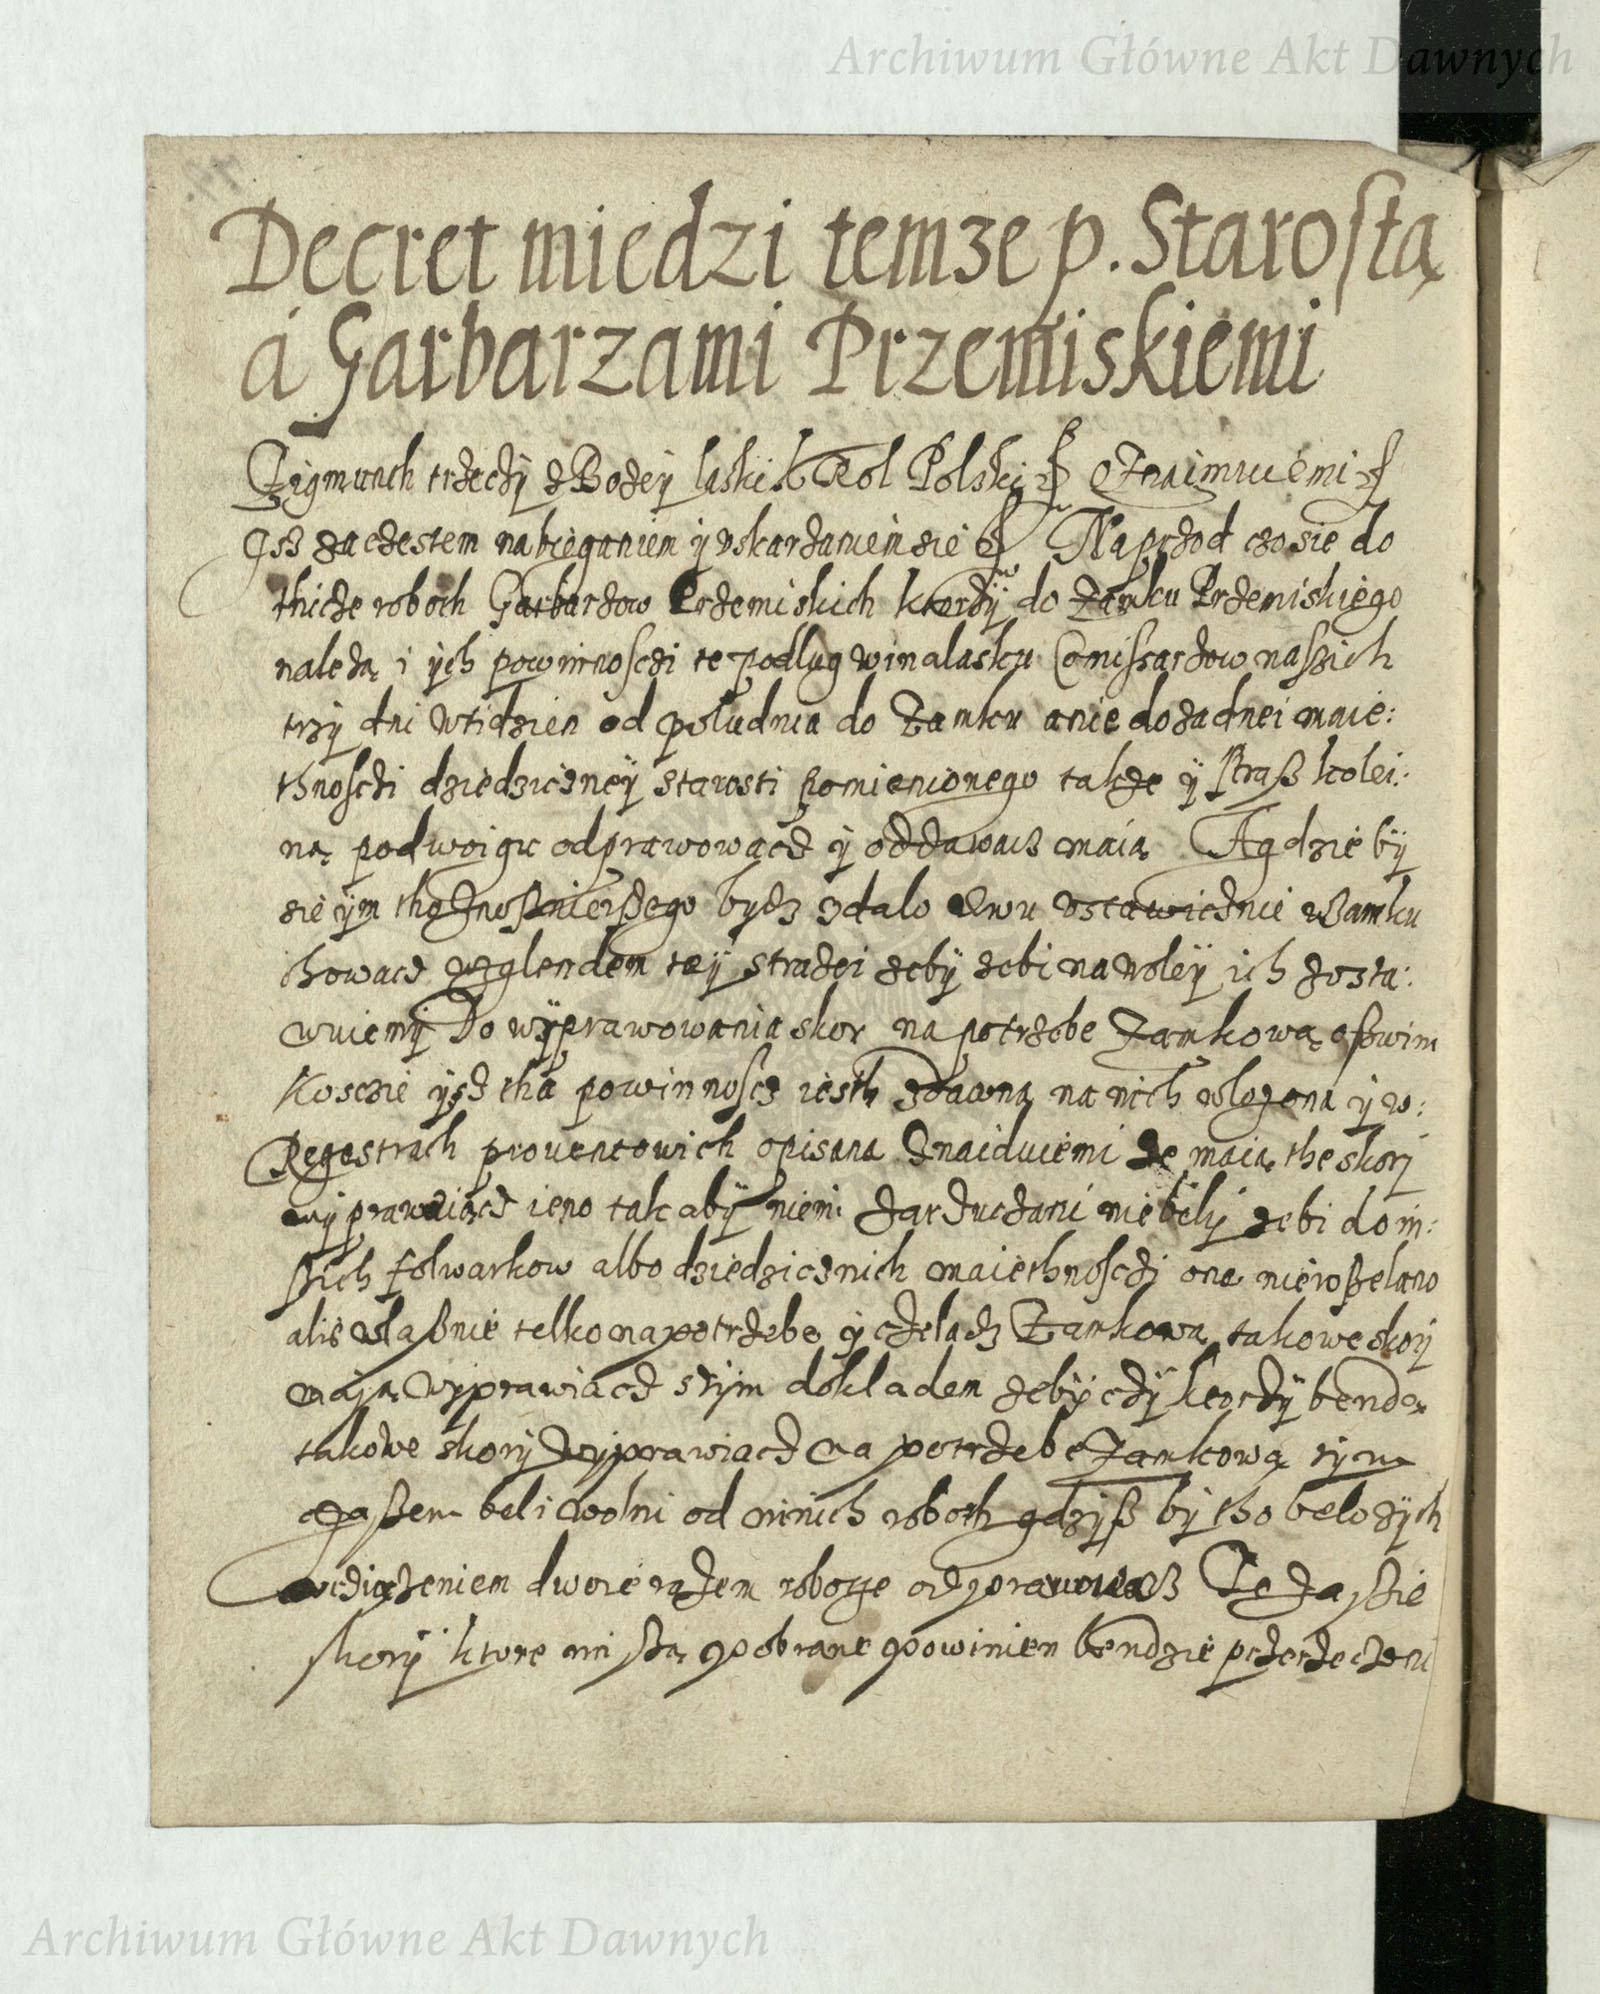 Archiwum Główne Akt Dawnych
Decret miedzi temze p. Starostą
á Garbarzami Przemiskiemi
Zigmunth trzeczÿ z Bozeÿ laski Krol Polski etc. Oznaimuiemi etc.
Isz za czestem nabieganiem ÿ uskarzaniem sie etc. Naprzod czo sie do
thicze roboth Garbarzow Przemiskich ktorzÿ do Zamku Przemiskiego
nalezą i ÿch powinnosczi te podlug winalasku Comissarzow naszich
trzÿ dni w tidzien od poludnia do Zamku a nie do zadnei maie:
thnosczi dziedziczneÿ starosti pomienionego takze ÿ straß kolei:
ną po dwoigu odprawowacz ÿ oddawacz maią A gdzie bÿ
sie ÿm tho znosznieißego bydz zdalo dwu ustawicznie w Zamku
chowacz wzglendem teÿ strazei zebÿ zebi na woleÿ ich zosta:
wuiemÿ Do wÿprawowania skor na potrzebe Zamkową oßwim
Kosczie ÿsz tha powinnoscz iesth zdawna na nich wlozona ÿ w:
Regestrach prouentowich opisana Znaiduiemi ze maią the skorÿ
wÿprawiacz ieno tak abÿ niemi zarzuczani nie belÿ zebi do in:
ßich folwarkow albo dziedzicznich maiethnosczi one nie roßelano
alie wlaßnie telko na potrzebe ÿ czeladz Zamkową takowe skorÿ
maią wÿprawiacz s tÿm dokladem zebÿ czÿ ktorzÿ bendą
takowe skorÿ wÿprawiacz na potrzebe Zamkową tÿm
czaßem beli wolni od innich roboth gdzÿß bÿ tho belo z ÿch
uczięzeniem dwoie razem robotÿ odprawowacz Ze zaßie
skorÿ ktore im są pobrane powinien bendzie przerzeczoni
Archiwum Główne Akt Dawnych